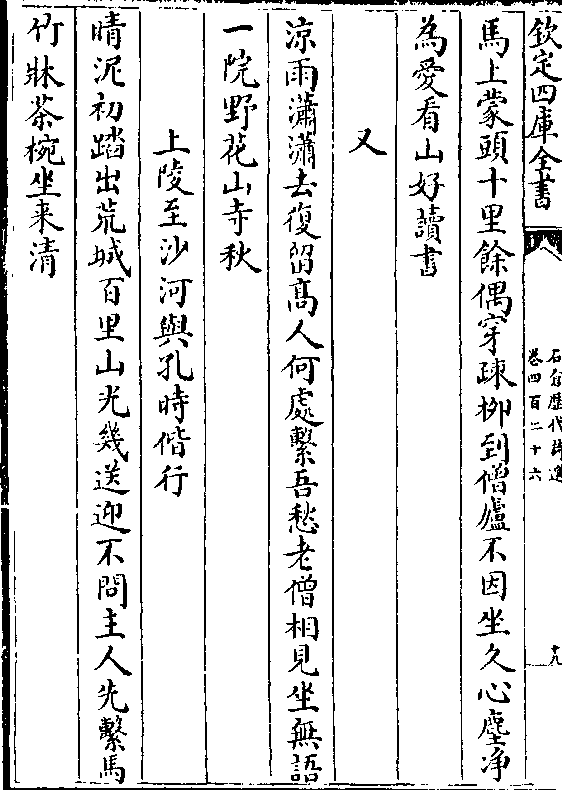 欽定四庫全書
石倉歴代詩選
卷四百二十六
十九
馬上蒙頭十里餘偶穿疎栁到僧廬不因坐久心塵净
為愛看山好讀書
又
涼雨瀟瀟去復留高人何處繫吾愁老僧相見坐無語
一院野花山寺秋
上陵至沙河與孔時偕行
晴泥初踏出荒城百里山光幾送迎不問主人先繫馬
竹牀茶椀坐来清